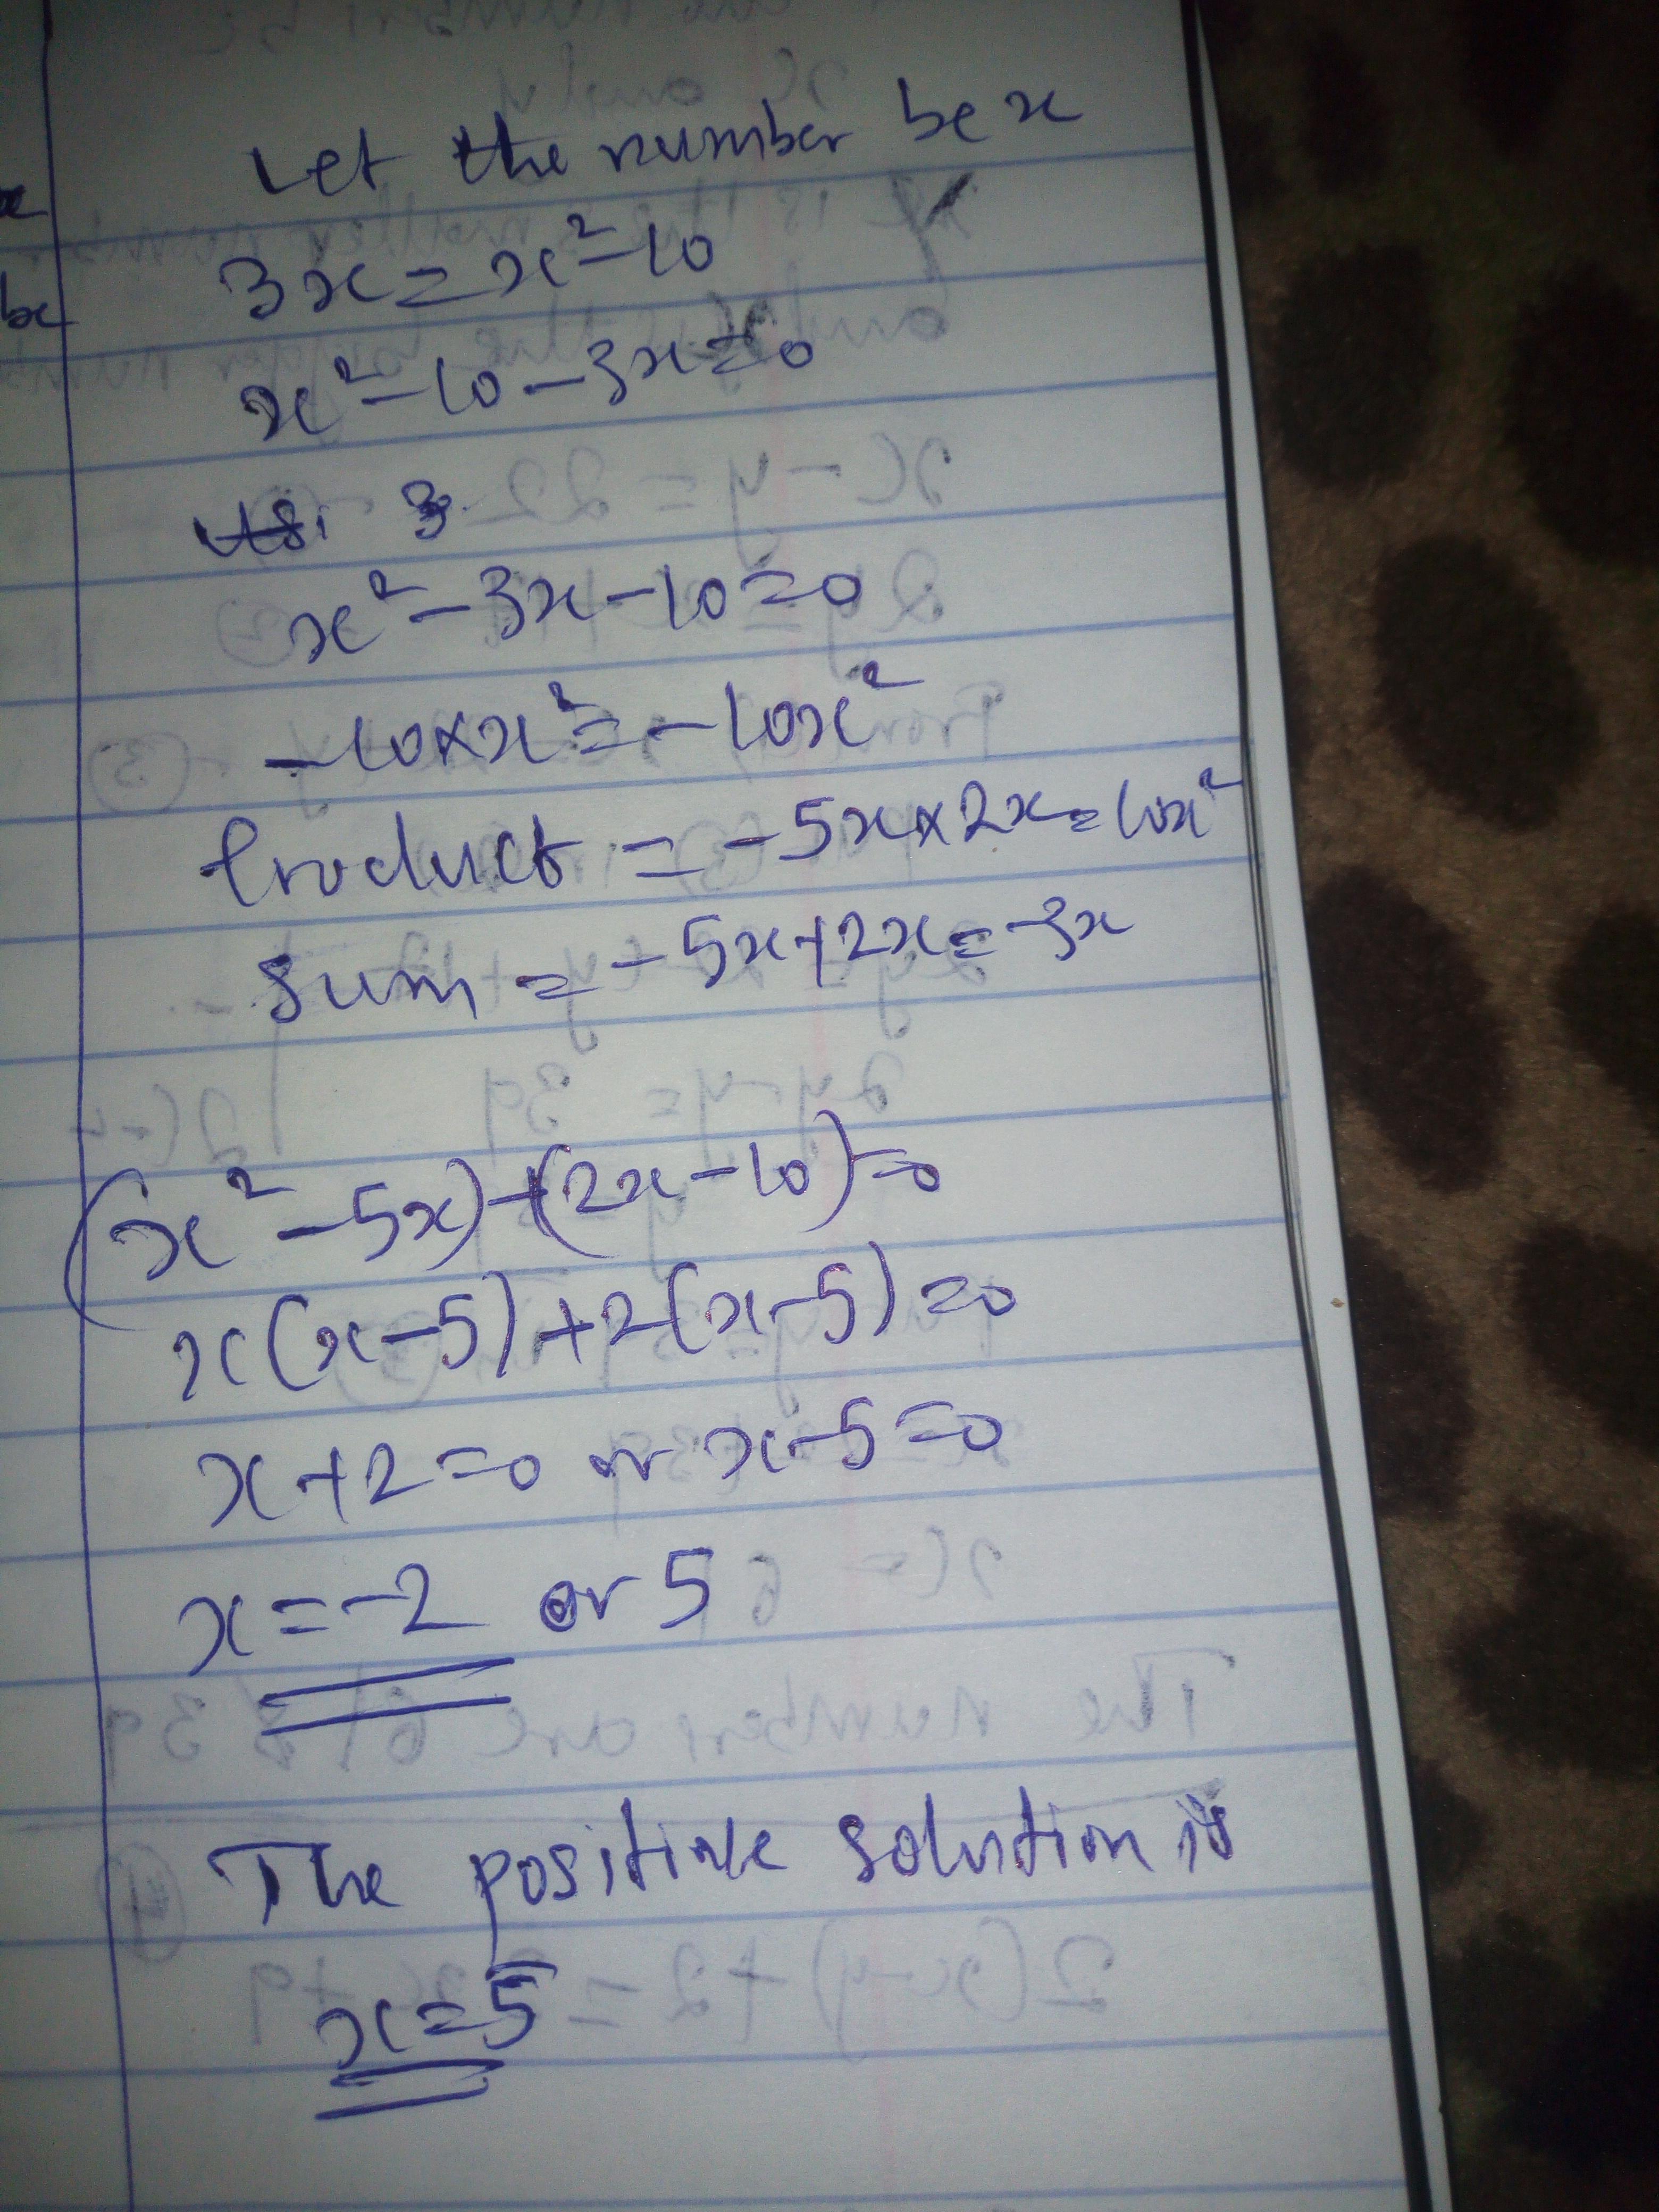 Let the number be x
3x = x² - 10
x² - 10 - 3x = 0
x² - 3x - 10 = 0
-10 × x² = -10x²
Product = -5x × 2x = 10x²
Sum = -5x + 2x = -3x
(x² - 5x) + (2x - 10) = 0
x(x - 5) + 2(x - 5) = 0
x + 2 = 0 or x - 5 = 0
x = -2 or 5
The positive solution is
x = 5